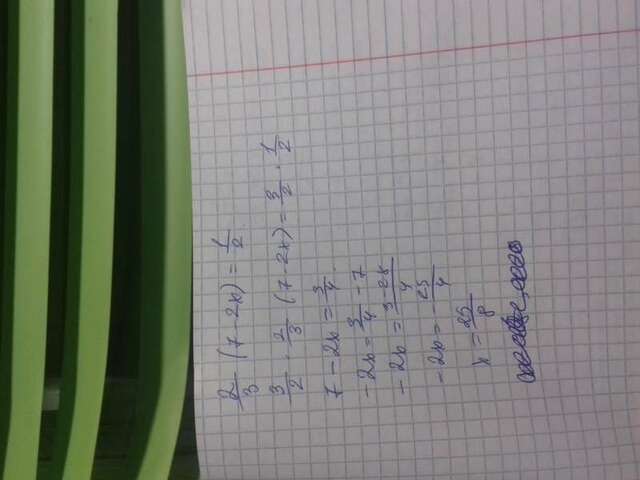 2/3 (7-2x) = 1/2
3/2 · 2/3 (7-2x) = 3/2 · 1/2
7 - 2x = 3/4.
-2x = 3/4 - 7
-2x = 3-28/4
-2x = -25/4
x = 25/8